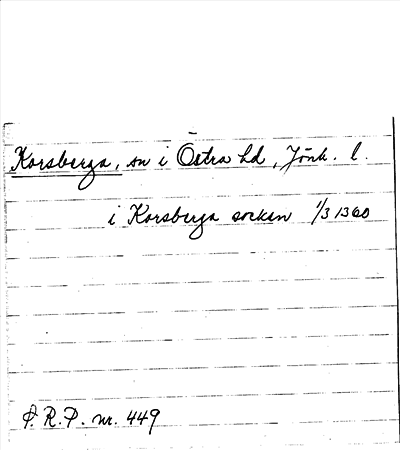 Korsberga, sn i Östra hd, Jönk. l.
i Korsberga socken 1/3 1360
P. R. P. nr. 449